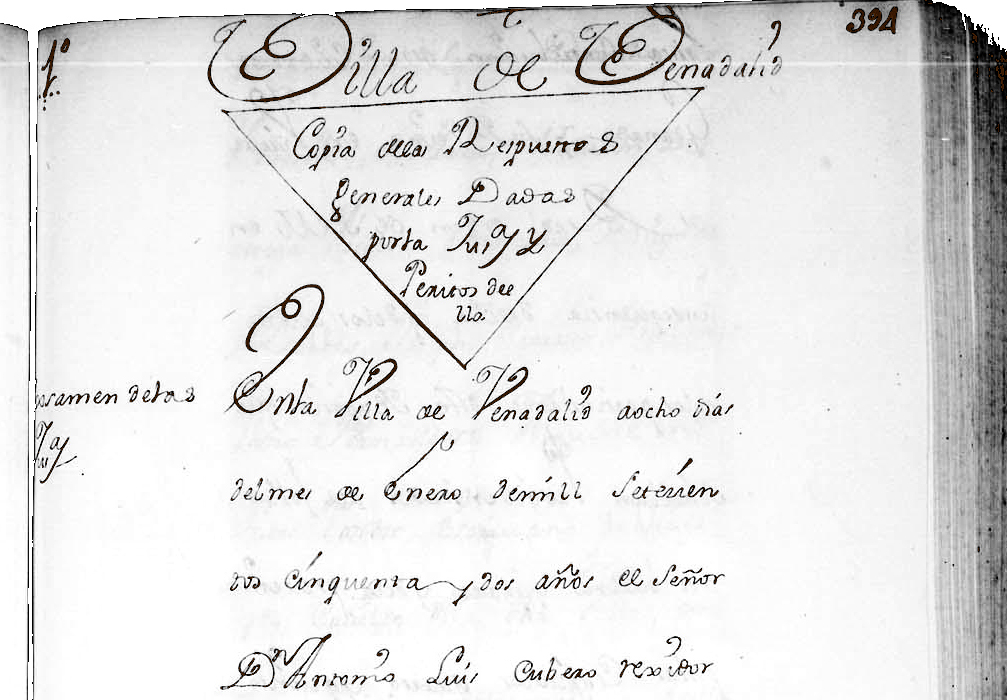 394
1º
Villa de Venadalid
Copia dela Respuestas
generales Dadas
porla Jusª y
Peritos dee
lla
Enla Villa de Venadalid aocho dias
examen delas
Jusª
delmes de Enero demill Setezien
dos cinquenta y dos años el Señor
Dn Antonio Luis Cubero rexidor